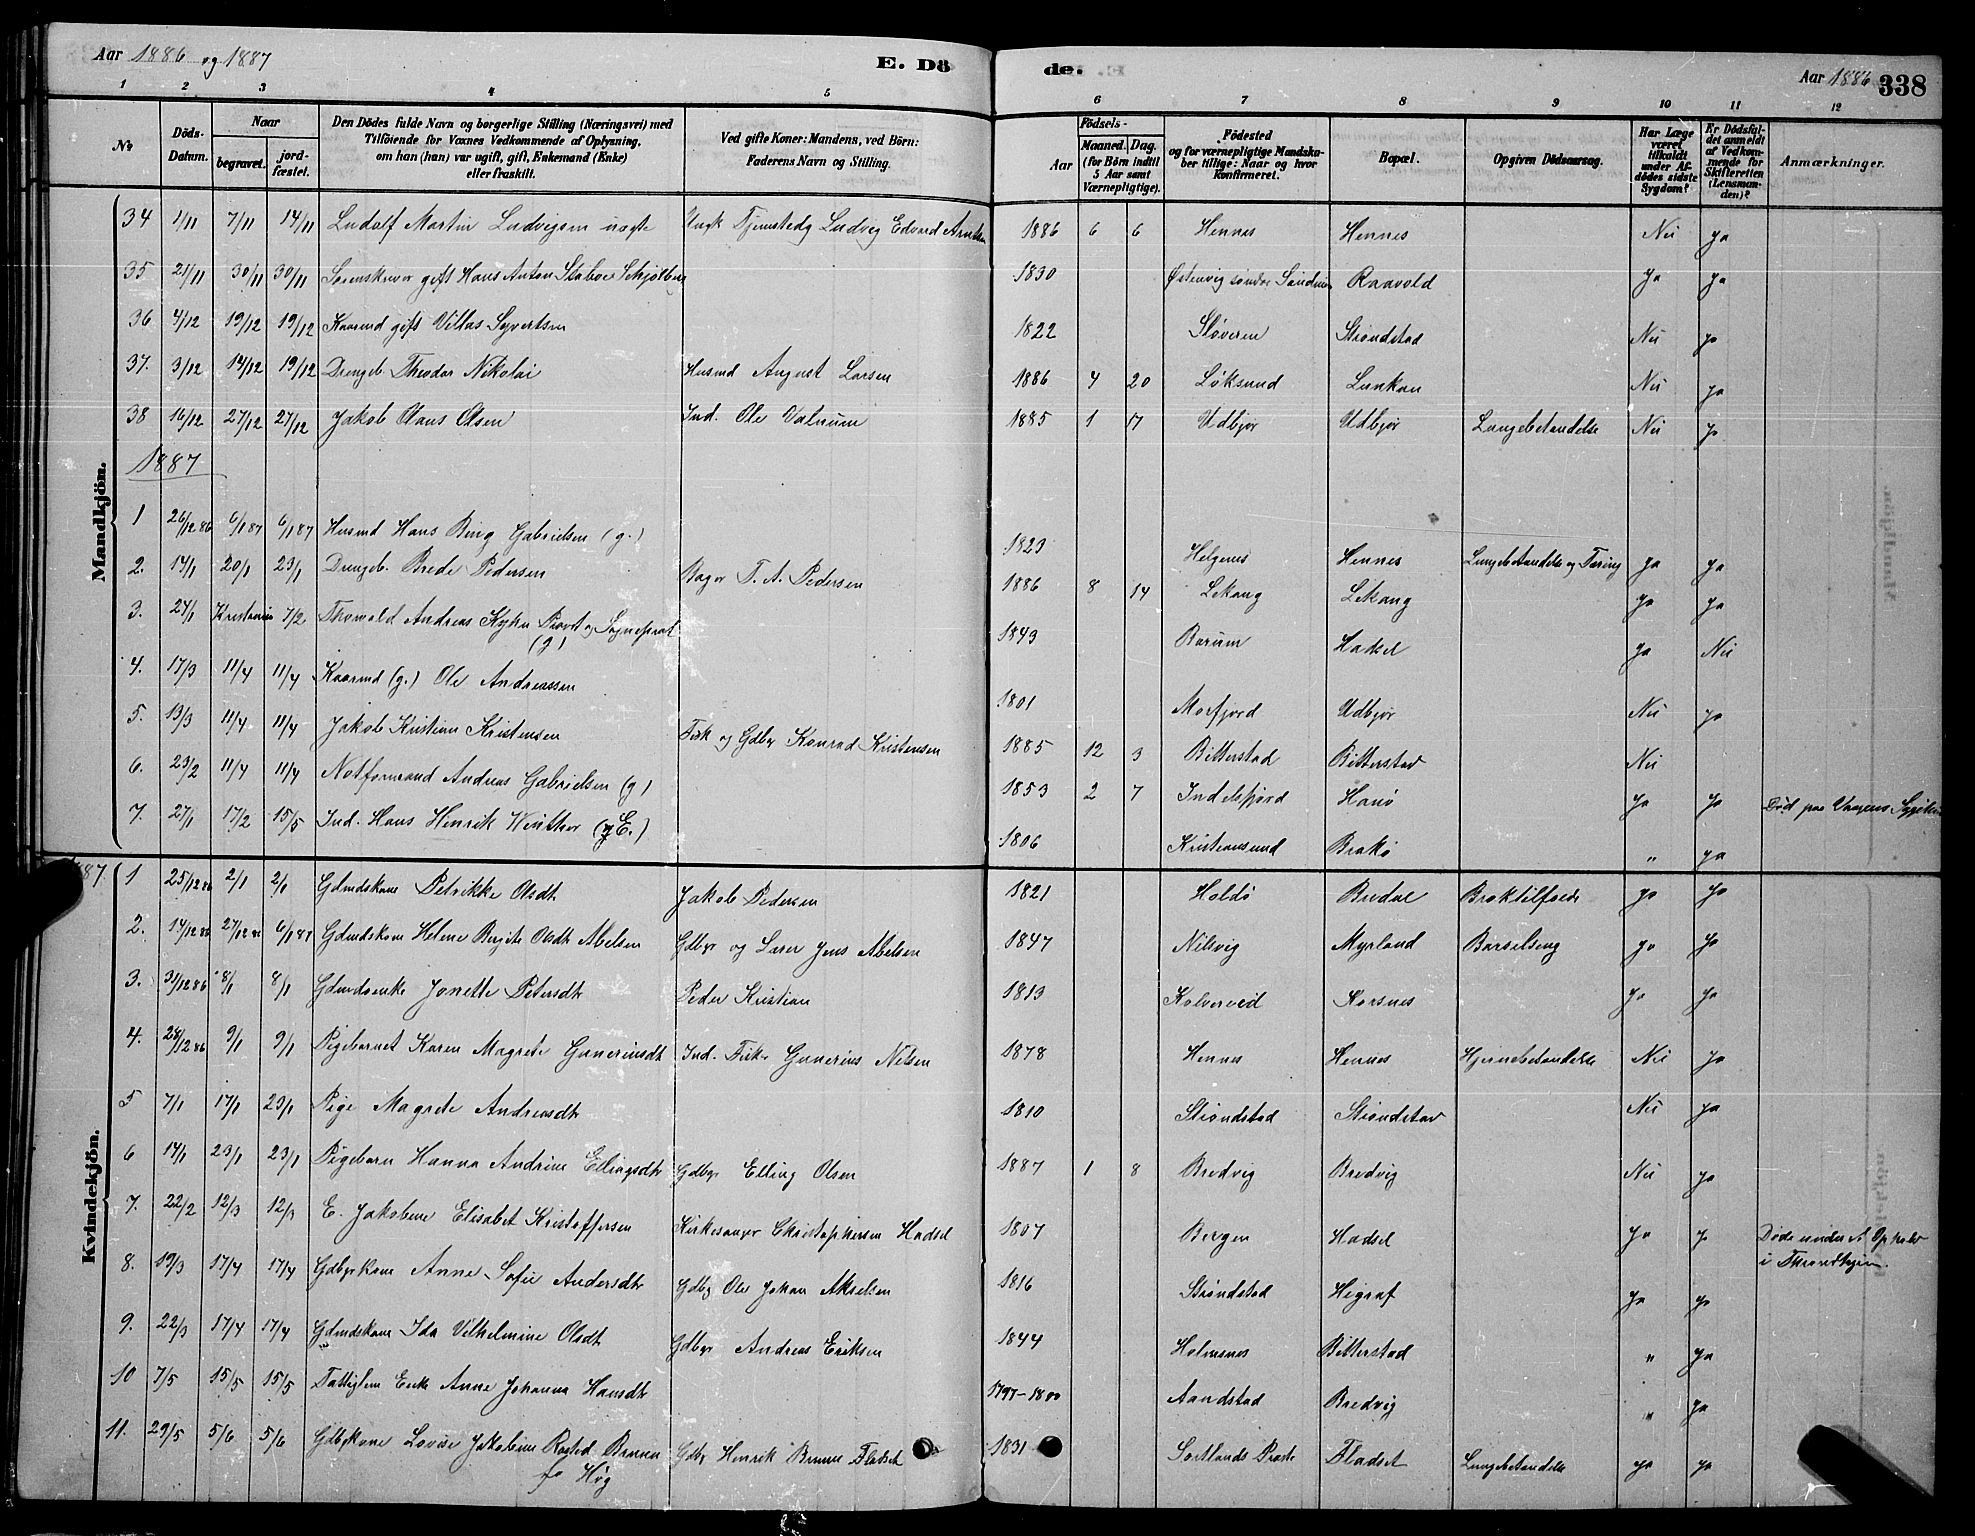 Aar 1886 og 1887
E. Dö
de.
Aar 1886
338
1 2 3 4 5 6 7 8 9 10 11 12
No
Döds-Datum.
Naar
begravet. jordfæstet.
Den Dödes fulde Navn og borgerlige Stilling (Næringsvei) med Tilföiende for Voxnes Vedkommende af Oplysning, om han (hun) var ugift, gift, Enkemand (Enke) eller fraskilt.
Ved gifte Koner: Mandens, ved Börn: Faderens Navn og Stilling.
Födsels-
Aar
Maaned. Dag.
(for Börn indtil 5 Aar samt Værnepligtige).
Födested og for værnepligtige Mandskaber tillige: Naar og hvor Konfirmeret.
Bopæl.
Opgiven Dödsaarsag.
Har Læge været tilkaldt under Afdödes sidste Sygdom?
Er Dödsfaldet anmeldt af Vedkommende for Skifteretten (Lensmanden)?
Anmærkninger.
Mandkjön.
34 1/11 7/11 14/11 Ludolf Martin Ludvigsen uægte Ungk Tjenstedg Ludvig Edvard Arntsen 1886 6 6 Hennes Hennes Nei ja
35 21/11 30/11 30/11 Sorenskriver gift Hans Anton Staboe Schjølberg 1830 Raavold ja ja
36 4/12 19/12 19/12 Kaarmd gift Villas Syvertsen 1822 Sløveren Strøndstad Nei ja
37. 3/12 14/12 19/12 Drengeb. Theodor Nikolai Husmd August Larsen 1886 4 20 Løksund Lunkan Nei ja
38 16/12 27/12 27/12 Jakob Olaus Olsen Ind. Ole Valnum 1885 1 17 Udbjør Udbjør Lungebetændelse Nei ja
1887
1 26/12 86 6/1 87 6/1 87 Husmd Hans Bing Gabrielsen (g.) 1823 Helgenes Hennes Lungebetændelse og Tæring ja ja
2. 14/1 20/1 23/1 Drengeb. Brede Pedersen Bager T. A. Pedersen 1886 8 14 Lekang Lekang ja ja
3. 24/1 Kristiania 7/2 Thorvald Andreas Kyhn Provst og Sogneprest (g) 1843 Barum Hadsel ja Nei
4. 17/3 11/4 11/4 Kaarmd (g.) Ole Andreassen 1801 Morfjord Udbjør Nei ja
5. 13/3 11/4 11/4 Jakob Kristian Kristensen Fisk og Gdbr Konrad Kristensen 1885 12 3 Bitterstad Bitterstad Nei
6. 23/2 11/4 11/4 Notformand Andreas Gabrielsen (g) 1853 2 7 Indelsfjord Hanø ja ja Død paa Vaagens Sygehus
7. 27/1 17/2 15/5 Ind. Hans Henrik Winther (E.) 1806 Kristiansund Brakø " ja
Kvindekjön.
1887 1 25/12 86 2/1 2/1 Gdmdskone Petrikke Olsdt Jakob Pedersen 1821 Holdø Bredal Broktilfælde ja ja
2. 14/12 86 27/12 86 6/1 87 Gdmdskone Helene Birgite Olsdt Abelsen Gdbr og Lærer Jens Abelsen 1847 Nilsvig Myrland Barselseng ja ja
3. 31/12 86 8/1 8/1 Gdmdsenke Jonette Petersdt Peder Kristian 1813 Kalvereid Korsnes ja ja
4. 28/12 86 9/1 9/1 Pigebarnet Karen Magrete Guneriusdt Ind. Fisk. Gunerius Nilsen 1878 Hennes Hennes Hjernebetændelse Nei ja
5 7/1 17/1 23/1 Pige Magrete Andreasdt 1810 Strøndstad Strøndstad Nei ja
6 14/1 23/1 23/1 Pigebarn Hanna Andrine Ellingsdt Gdbr Elling Olsen 1887 1 8 Bredvig Bredvig Nei ja
7. 22/2 12/3 12/3 E. Jakobine Elisabet Kristoffersen Kirkesanger Christophersen Hadsel 1807 Bergen Hadsel ja ja Døde under et Ophold i Throndhjem.
8. 19/3 17/4 17/4 Gdbrkone Anne Sofie Andersdt Gdbr Ole Johan Akselsen 1816 Strøndstad Higraf ja ja
9. 22/3 17/4 17/4 Gdmdskone Ida Vilhelmine Olsdt Gdbr Andreas Eriksen 1844 Holmsnes Bitterstad " ja
10 7/5 15/5 15/5 Fattiglem Enke Anne Johanna Hansdt 1797-1800 Aandstad Bredvig " ja
11. 29/5 5/6 5/6 Gdbrkone Lovise Jakobine Rosted Bruun fø Høg Gdbr Henrik Bruun Fladset 1831 Sortlands Præst Fladset Lungebetændelse ja ja